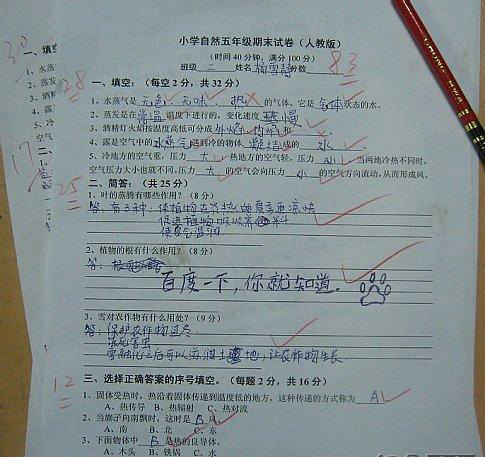 小学自然五年级期末试卷（人教版）
（时间40分钟，满分100分）
班级 三 姓名 分数 83
一、填空：（每空2分，共32分）
28
1、水蒸气是 无色、无味、热 的气体，它是 气体 状态的水。
2、蒸发是在 常温 温度下进行的，变化速度 慢
3、酒精灯火焰按温度高低可分成 外焰、内焰 和
4、露是空气中的 水蒸气 遇到冷的物体，凝结 成的 水
5、冷地方的空气重，压力 大，热地方的空气轻，压力 小 当两地冷热不同时，
空气压力大小也就不同。压力 大 的空气会向压力 小 的空气方向流动，从而形成风。
二、简答：（共25分）
25
1、叶的蒸腾有哪些作用？（8分）
答：有三种：保植物在炎热的夏季更凉快
促进植物吸收养料
使空气湿润
2、植物的根有什么作用？（8分）
答：
百度一下，你就知道.
3、雪对农作物有什么用处？（9分）
答：保护农作物过冬
冻死害虫
雪融化之后可以滋润土地，让农作物生长
三、选择正确答案的序号填空。（每题2分，共16分）
12
1、固体受热时，热沿着固体传递到温度低的地方，这种传递的方式称为 A
A、热传导 B、热辐射 C、热对流
2、当旗子向南飘时，这时是 B 风
A、南 B、北 C、东
3、下面物体中 B 是热的良导体。
A、木头 B、铁锅 C、水